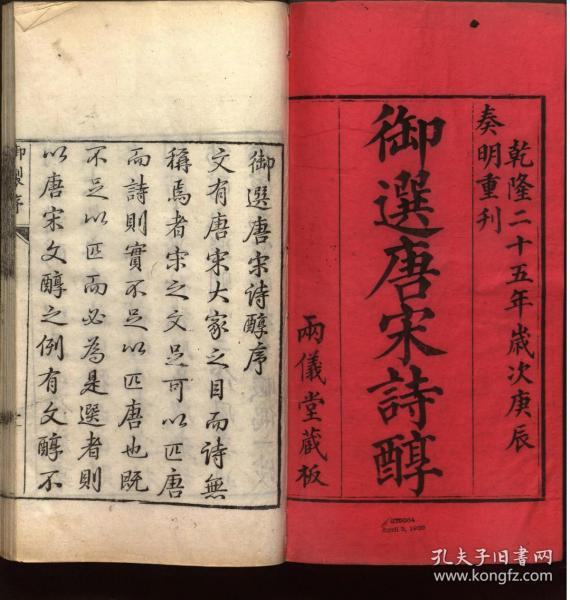 乾隆二十五年歲次庚辰
奏明重刊
御選唐宋詩醇
兩儀堂藏板
御選唐宋詩醇序
文有唐宋大家之目而詩無
稱焉者宋之文足可以匹唐
而詩則實不足以匹唐也既
不足以匹而必為是選者則
以唐宋文醇之例有文醇不
御製序
孔夫子旧书网
www.kongfz.com